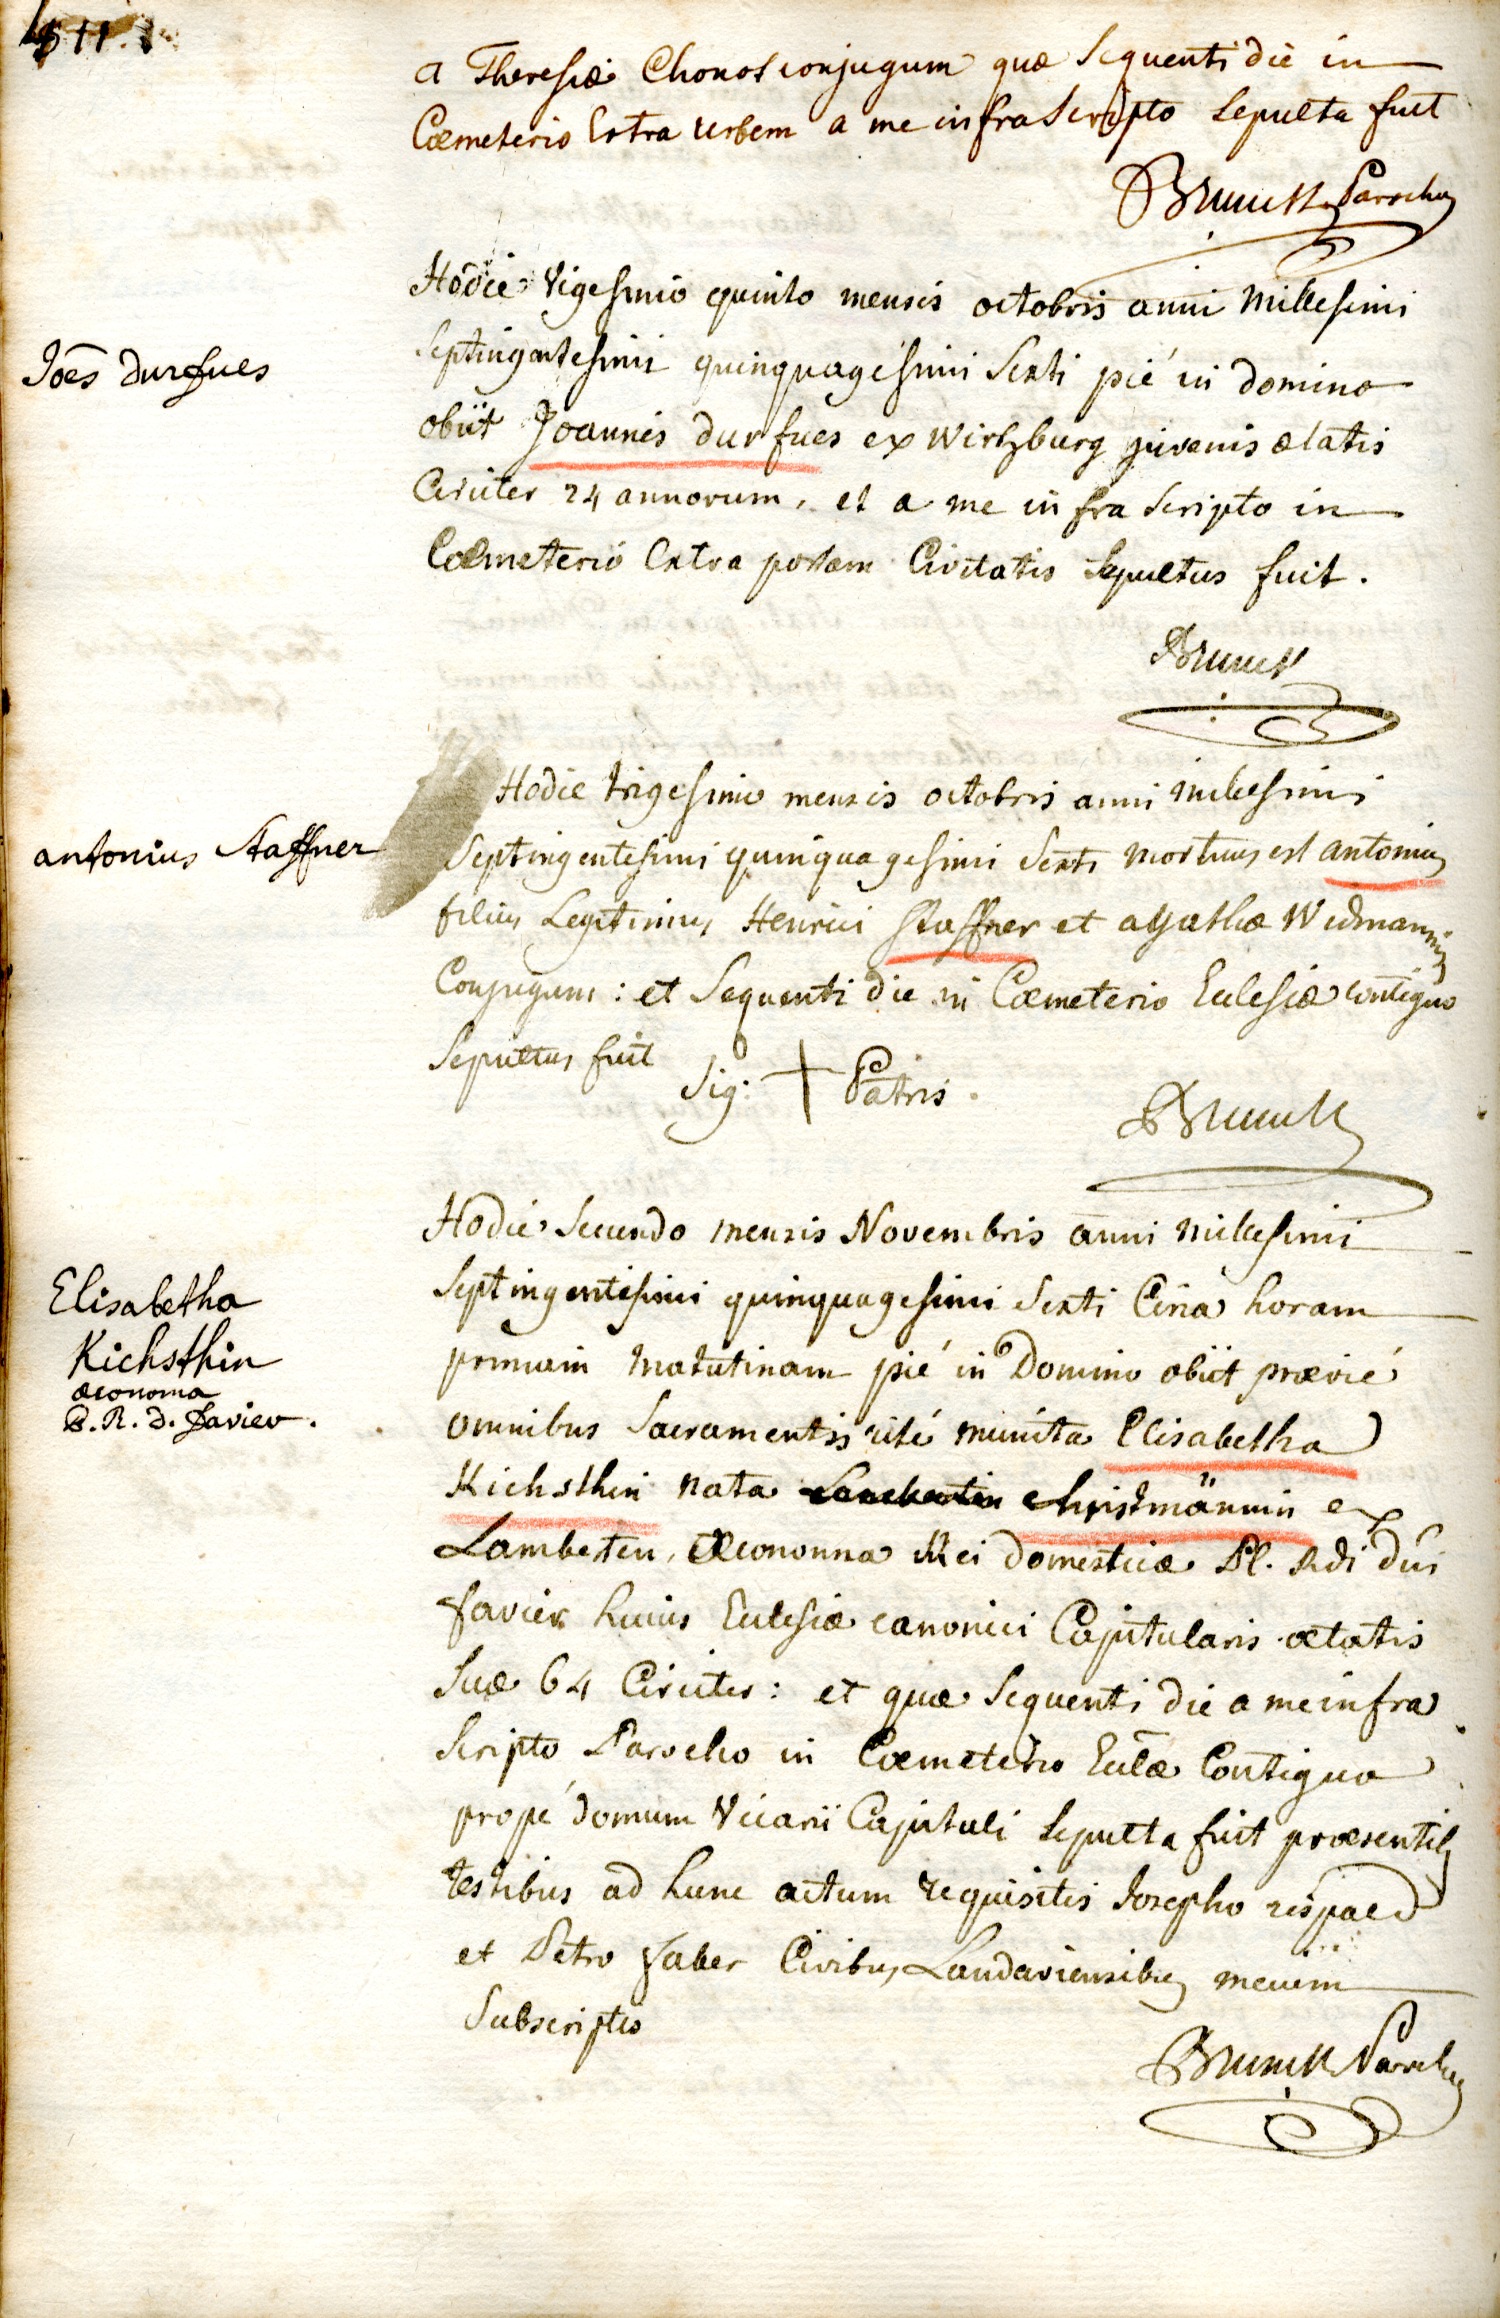 a Theresiæ Chonot conjugum quæ Sequenti die in
Cœmeterio Extra urbem a me infra Scripto Sepulta fuit
Brunck Parochus
Joēs Durfues
Hodie Vigesimo quinto mensis octobris anni Millesimi
Septingentesimi quinquagesimi Sexti pié in domino
obiit Joannes durfues ex Wirtzburg juvenis ætatis
Circiter 24 annorum, et a me infra Scripto in
Cœmeterio Extra portam Civitatis Sepultus fuit.
Brunck
antonius Staffner
Hodie trigesimo mensis octobris anni millesimi
Septingentesimi quinquagesimi Sexti mortuus est antonius
filius Legitimus Henrici Staffner et agathæ Widmannin
Conjugum: et Sequenti die in Cœmeterio Eclesiæ contiguo
Sepultus fuit
Sig: + Patris.
Brunck
Elisabetha
Kichsthin
œconoma
R. D. Favier.
Hodie Secundo mensis Novembris anni millesimi
Septingentesimi quinquagesimi Sexti Circa horam
primam matutinam pié in Domino obiit prævié
omnibus Sacramentis rité munita Elisabetha
Kichsthin nata christmännin ex
Lamberten, Œconoma Rei domesticæ Pl. Rdi dni
Favier huius Eclesiæ canonici Capitularis ætatis
Suæ 64 Circiter: et quæ Sequenti die a me infra
Scripto Parocho in Cœmeterio Eclæ Contiguo
propé domum Vicarii Capituli Sepulta fuit præsentibus
testibus ad hunc actum requisitis Josepho
et Petro Faber Civibus Landaviensibus mecum
Subscriptis
Brunck Parochus